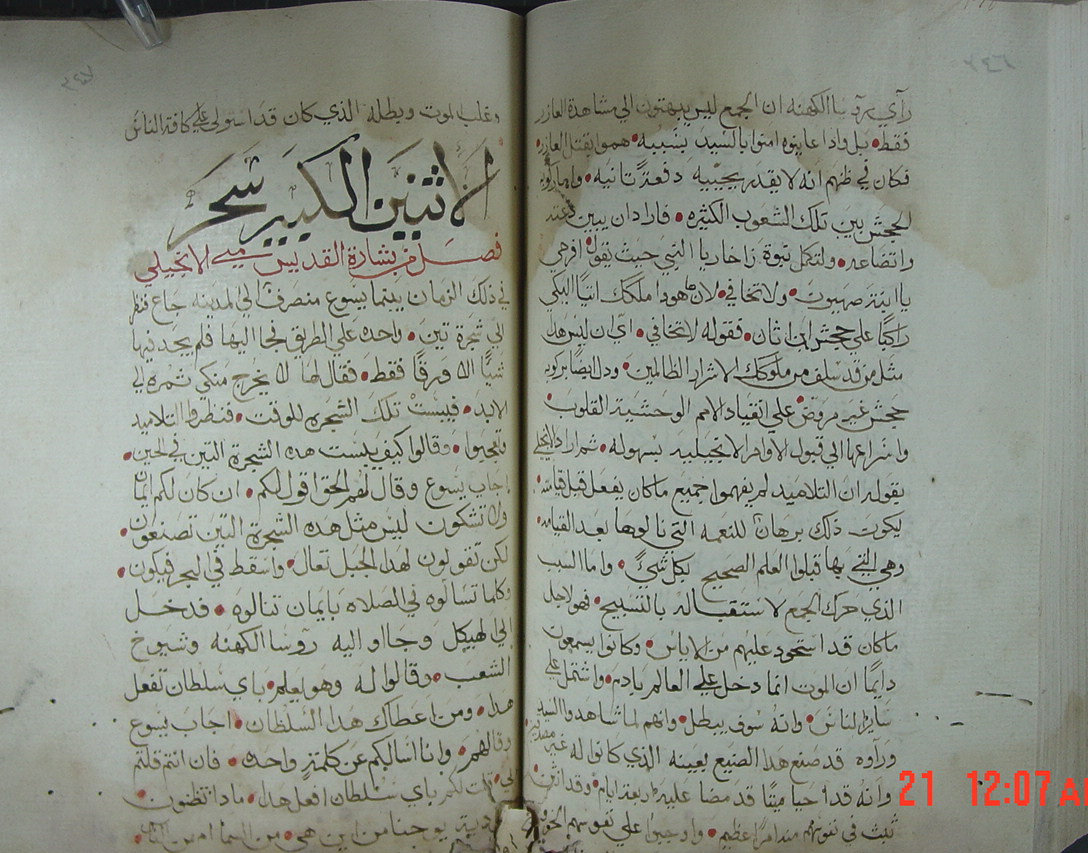 رأى روسا الكهنه ان الجمع ليس يبهتون الي مشاهدة العازر
فقط• بل واذا عاينوه امنوا بالسيد بسببه• هموا بقتل العازر
فكان في ظنهم انه لا يقدر يجيبيه دفعة ثانيه• واما ركوبه
الجحش بين تلك الشعوب الكثيره• فاراد ان يبين عنه
واتضاعه• ولتكمل نبوة زاخاريا النبي حيث يقول افرحي
يا ابنة صهيون• ولا تخافي• لان هودا ملكك اتيًا اليكي
راكبًا علي جحش ابن اتان• فقوله لا تخافي• اي ان ليس هدا
مثل من قد سلف من ملوكك الاشرار الظالمين• ودل ايضًا بركوبه
جحش غير مروض علي انقياد الامم الوحشية القلوب
واسراعها الي قبول الاوامر الانجيليه بسهوله• ثم اراد الانجيلي
بقوله ان التلاميد لم يفهموا جميع ما كان يفعل قبل قيامته
ليكون ذلك برهان للنعمه التي نالوها بعد القيامه
وهي التي بها قبلوا العلم الصحيح بكل شيء• واما السبب
الذي حرك الجمع لاستقباله بالتسبيح• فهو لاجل
ما كان قد استحود عليهم من الاياس• وكانوا يسمعون
دايمًا ان الموت انما دخل علي العالم بادم• واشتمل علي
ساير الناس• وانه سوف يبطل• وانهم لما شاهدوا السيد
وراوه قد صنع هدا الصنيع بعينه الدي كانوا له غير مصدقين
وانه قد احيا ميتًا قد مضا عليه اربعة ايام•
ثبت في نفوسهم مند امرًا عظيم• واوجبوا علي نفوسهم
وغلب الموت وبطله الذي كان قد استولي علي كافة الناس
الاثنين الكبير سحر
فصل من بشارة القديس متي الانجيلي
في ذلك الزمان بينما يسوع منصرف الي المدينه جاع فنظر
الي شجرة تين• واحده علي الطريق فجا اليها فلم يجد فيها
شيًا الا ورقًا فقط• فقال لها لا يخرج منكي ثمره الي
الابد• فيبست تلك الشجره للوقت• فنظروا التلاميد
وتعجبوا• وقالوا كيف يبست هده الشجرة التين في الحين•
اجاب يسوع وقال لهم الحق اقول لكم• ان كان لكم ايمان
ولا تشكون ليس مثل هده الشجرة التين تصنعون•
لكن تقولون لهدا الجبل تعال• واسقط في البحر فيكون•
وكلما تسالوه في الصلاه بايمان تنالوه• فدخل
الي الهيكل وجااو اليه روسا الكهنه وشيوخ
الشعب• وقالوا له وهو يعلم• باي سلطان تفعل
هدا• ومن اعطاك هدا السلطان• اجاب يسوع
وقال لهم• وانا اسالكم عن كلمةٍ واحده• فان انتم قلتم
لي• قلت لكم باي سلطان افعل هدا• مادا تظنون•
يوحنا من اين هي• من السما ام من الناس•
21 12:07 AM